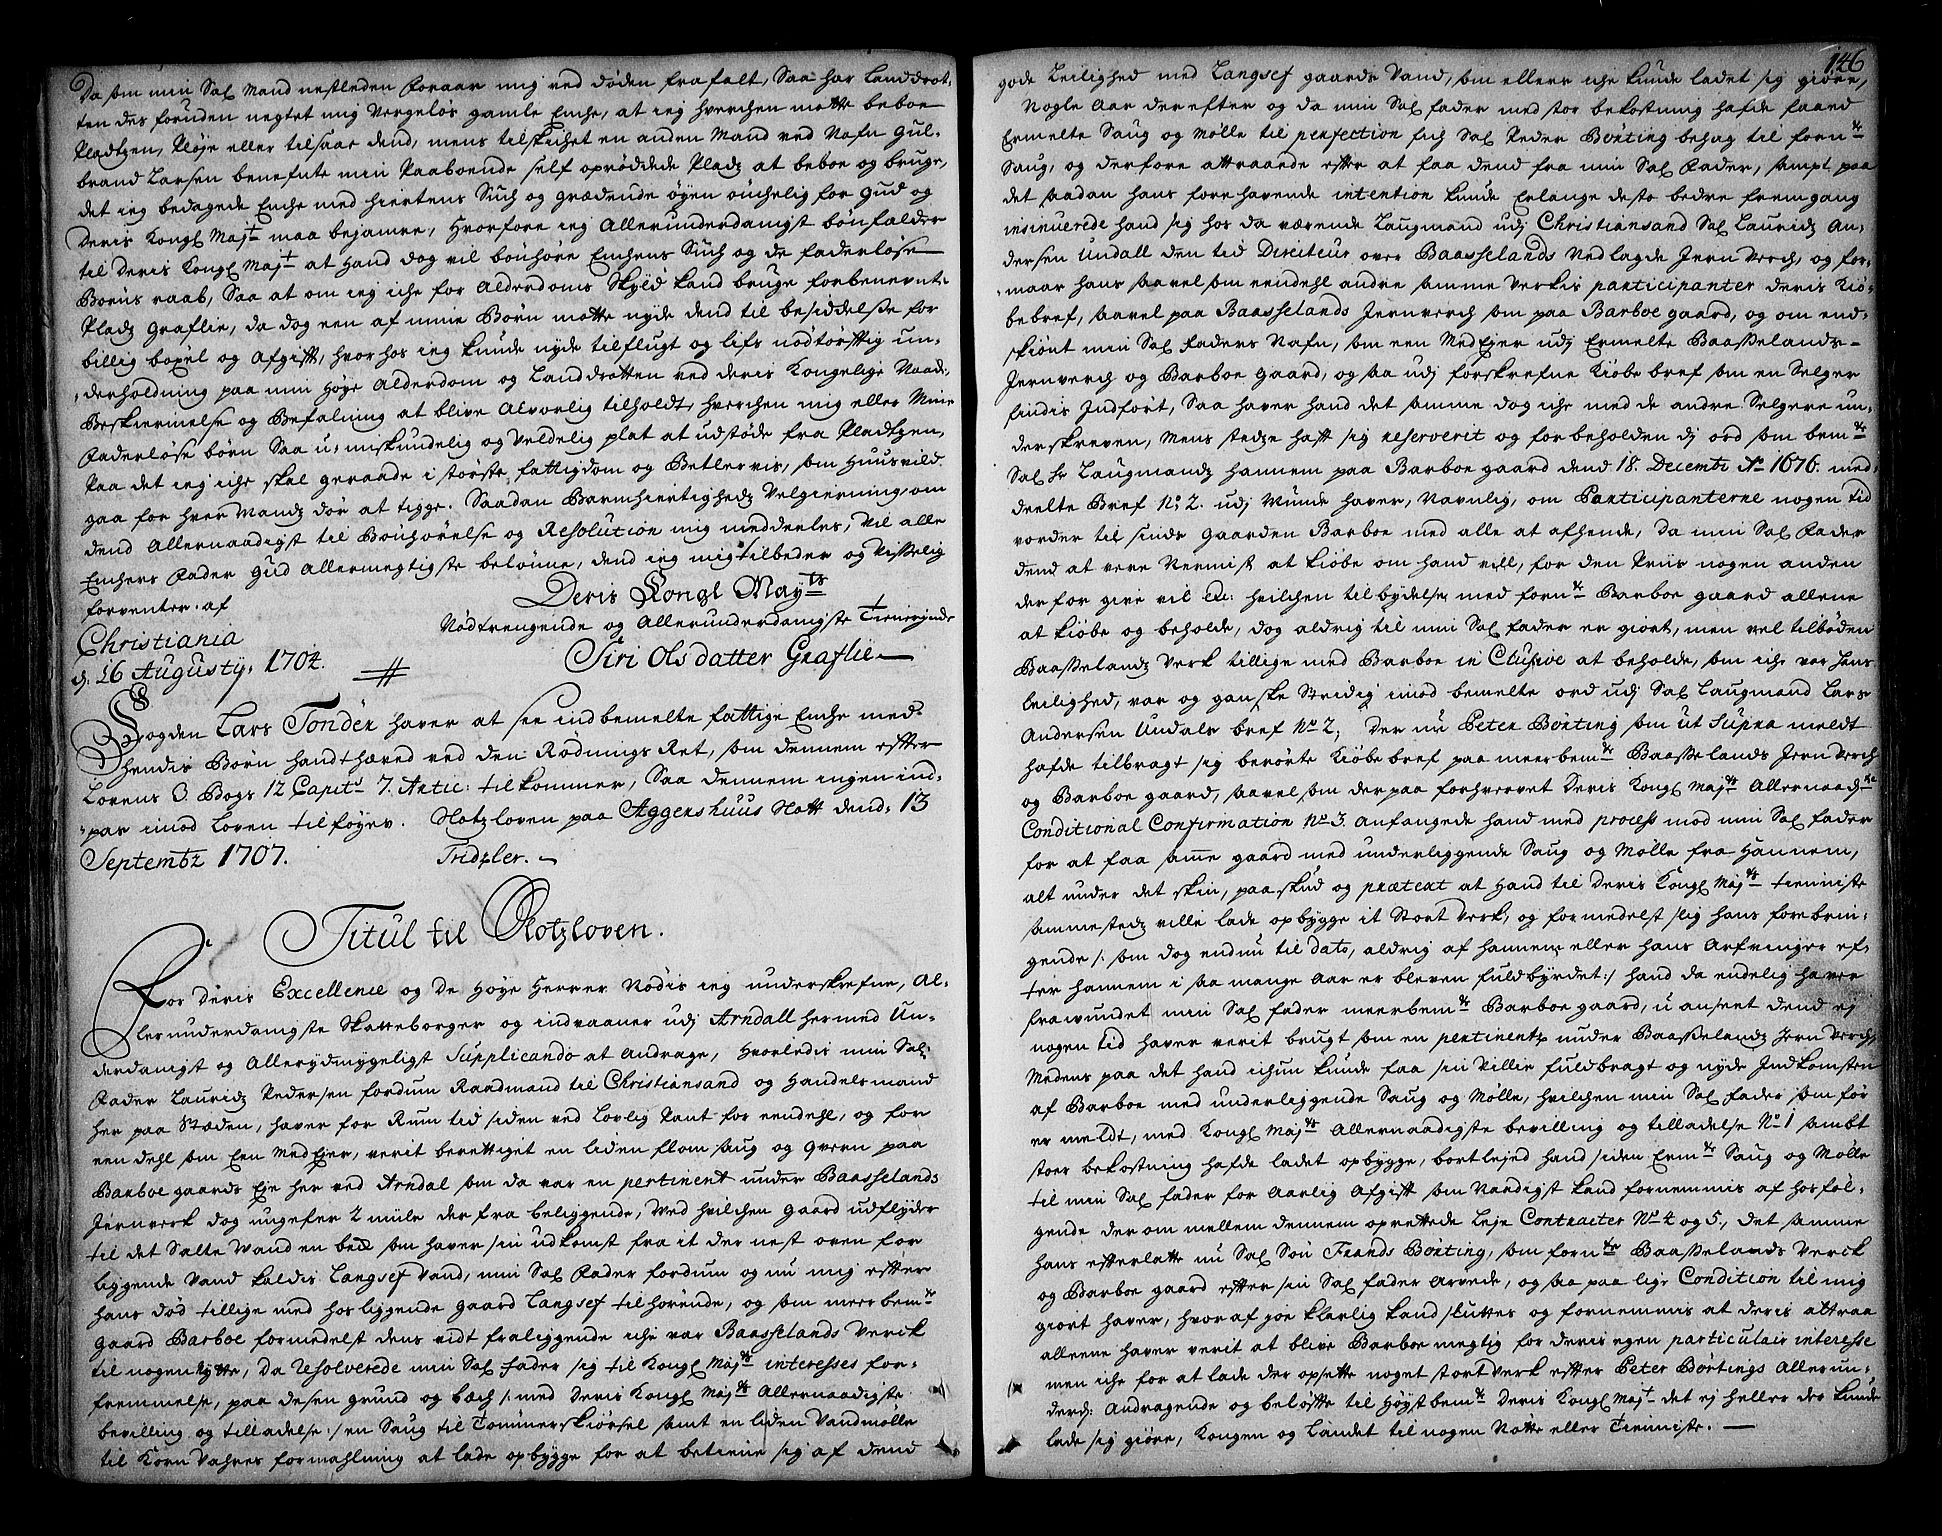 Da som min Sal Mand nestleden Foraar mig ved døden frafalt, Saa har Landdrot-
ten des foruden negtet mig Vergeløs gamle Enche, at ieg hverchen motte beboe
Pladtzen, Pløje eller tilsaae dend, mens tilskichet en anden Mand ved Nafn Gul-
brand Larsen benefnte min Paaboende self oprøddede Pladz at beboe og bruge,
det ieg bedagede Enche med hiertens Such og grædende øyen ønchelig for Gud og
Deris Kongl Mayt maa bejamre, Hvorfore ieg Allerunderdanigst bønfalder
til Deris Kongl Mayt at Hand dog vil bønhøre Enchens Such og de faderløse
Børns raab, Saa at om ieg iche for Alderdoms Skyld kand bruge forbenevnte
Pladz Graflie, da dog een af mine Børn motte nyde dend til besiddelse for
billig boxel og Afgifft, hvorhos ieg kunde nyde tilflugt og lifs nødtørfftig un-
derholdning paa min Høye Alderdom og Landdrotten ved deris Kongelige Naad:
Beskiermelse og Befalning at blive Alvorlig tilholdt, hverchen mig eller Mine
Faderløse børn Saa u-miskundelig og Veldelig plat at udstøde fra Pladtzen,
Paa det ieg iche skal geraade i største fattigdom og Betlervis, som Huusvild
gaa for hver Mandz dør at tigge. Saadan Barmhiertighedz Velgierning, om
dend Allernaadigst til Bønhørelse og Resolution mig meddeeles, Vil alle
Enchers Fader Gud Allermegtigste belønne, dend ieg mig tilbeder og visselig
forventer. af
Deris Kongl Mayts
Christiania
Nødtrengende og Allerunderdanigste Tienerinde
d. 26 Augusty. 1704.
Siri Olsdatter Graflie
Fogden Lars Tonder haver at see indbemelte fattige Enche med
hendis Børn handthæved ved den Rødnings Ret, som dennem effter
Lovens 3. Bogs 12 Capitl 7. Artic: tilkommer, Saa dennem ingen ind-
pas imod Loven tilføyes. Slotzloven paa Aggershuus Slott dend: 13
Septembr 1707. Tridzler.
Titul til Slotzloven.
For Deris Excellence og De Høye Herrer Nødis ieg underskrefne, Al-
lerunderdanigste Skatteborger og indvaaner udj Arndall hermed Un-
derdanigst og Allerydmygeligt Supplicando at Andrage, Hvorledis min Sal
Fader Lauridz Pedersen fordum Raadmand til Christiansand og Handelsmand
her paa Stæden, haver for Rum tid siden ved Lovlig Pant for eendehl, og for
een dehl som Een MedEjer, verit berettiget en liden flomsaug og Qvern paa
Barboe gaards Eje her ved Arndal som da var en pertinent under Baasselands
Jernverk dog ungefer 2 mile der fra beliggende, Med hvilchen gaard udflyder
til det Salte Vand en bæch som haver sin udkomst fra it der nest oven for
liggende Vand kaldis Langsef Vand, min Sal Fader fordum og nu mig effter
hans død tillige med hosliggende gaard Langsef tilhørende, og som meerbemte
Gaard Barboe formedelst dens vidt fraliggende iche var Baasselands Verck
til nogen nytte, Da resolverede min Sal fader sig til Kongl Majts interesses for-
fremmelse, paa desen grund og bæch /: med Deris Kongl Majts Allernaadigste
bevilling og tilladelse :/ en Saug til Tømmerskiørsel samt en liden Vandmølle
til Korn Vahres formahlning at lade opbygge for at betiene sig af dend
146
gode Leilighed med Langsef gaards Vand, som ellers iche kunde ladet sig giøre,
Nogle Aar derefter og da min Sal fader med stor bekostning hafde faaed
Ermelte Saug og Mølle til perfection fich Sal Peder Børting behag til fornte
Saug, og derfore attraaede efter at faa dend fra min Sal Fader, sampt paa
det saadan hans forehavende intention kunde Erlange desto bedre fremgang
insinuerede hand sig hos da værende Laugmand udj Christiansand Sal Lauridz An-
dersen Undall den tid Directeur over Baasselands Nedlagde Jern Verch, og for-
maar hans saavel som eendehl andre samme Verkis participanter deris Kiø-
bebref, saavel paa Baasselands Jernverch som paa Barboe gaard, og om end-
skiønt min Sal Faders Nafn, som een MedEjer udj Ermelte Baasselands-
Jernverch og Barboe gaard, og saa udj forskrefne Kiøbe bref som en Selger
findis Indført, Saa haver hand det samme dog iche med de andre Selgere un-
derskreven, Mens stedze hafft sig reserverit og forbeholden dj ord som bemte
Sal Hr Laugmandz Hannem paa Barboe gaard dend 18. Decembr Ao 1676. med-
deelte Bref No 2. udj Munde haver, Navnlig, om Participanterne nogen tid
vorder til sinds Gaarden Barboe med alle at afhende, da min Sal Fader
dend at vere Nermist at kiøbe om hand vill, for den Priis nogen anden
der for give vil etc: hvilchen tilbydelse, med fornte Barboe gaard alleene
at kiøbe og beholde, dog aldrig til min Sal fader er giort, men vel tilbøden
Baasselandz Verk tillige med Barboe in Clusive at beholde, som iche var Hans
leilighed, var og ganske Stridig imod bemelte ord udj Sal Laugmand Lars
Andersen Undals bref No 2, Der nu Peter Børting som ut Supra meldt
hafde tilbragt sig berørte Kiøbe bref paa meerbemte Baasselands Jern Verch
og Barboe gaard, saavel som derpaa forhvervet Deris Kongl Majts Allernaadste
Conditional Confirmation No 3. anfangede hand med process mod min Sal fader
for at faa same gaard med underliggende Saug og Mølle fra Hannem,
alt under det skin, paaskud og prætext at Hand til Deris Kongl Majts tienniste
sammestedz ville lade opbygge it Stort Verk, og formedelst slig hans forebrin-
gende /: som dog endnu til dato, aldrig af hannem eller hans Arfvinger ef-
ter hannem i saa mange Aar er bleven fuldbyrdet :/ hand da endelig haver
frawundet min Sal fader meerbemte Barboe gaard, u anseet dend ej
nogen tid haver verit brugt som en pertinentz under Baasselandz Jern Verch,
Medens paa det hand ichun kunde faa sin Villie fuldbragt og nyde Indkomsten
af Barboe med underliggende Saug og Mølle, hvilchen min Sal fader som før
er meldt, med Kongl Majts Allernaadigste bevilling og tilladelse No 1 sambt
stoer bekostning hafde ladet opbygge, bortlejed hand siden Ermte Saug og Mølle
til min Sal fader for Aarlig Afgifft som Naadigst kand fornemmis af hosføl-
gende der om mellem dennem oprettede Leje Contracter No 4 og 5, det samme
hans effterlatte nu Sal Søn Frands Børting, som fornte Baasselands Verck
og Barboe gaard effter sin Sal fader arvede, og saa paa lige Condition til mig
giort haver, hvoraf joe klarlig kand sluttes og fornemmis at deris attraa
alleene haver verit at blive Barboe megtig for deris egen particulair interesse
men iche for at lade der opsette noget stort Verk effter Peter Børtings Allerun-
derd: Andragende og beløffte til Høystbemte Deris Kongl Majt det ej heller der kunde
lade sig giøre, Kongen og Landet til nogen Nøtte eller Tienniste.